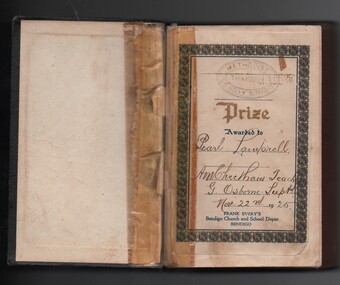 METHODIST
Prize
Awarded to
Pearl Lamprell
Teach
G. Osborne Supt
Nov. 22nd 1925
FRANK EVERY'S
Bendigo Church and School Depot
BENDIGO